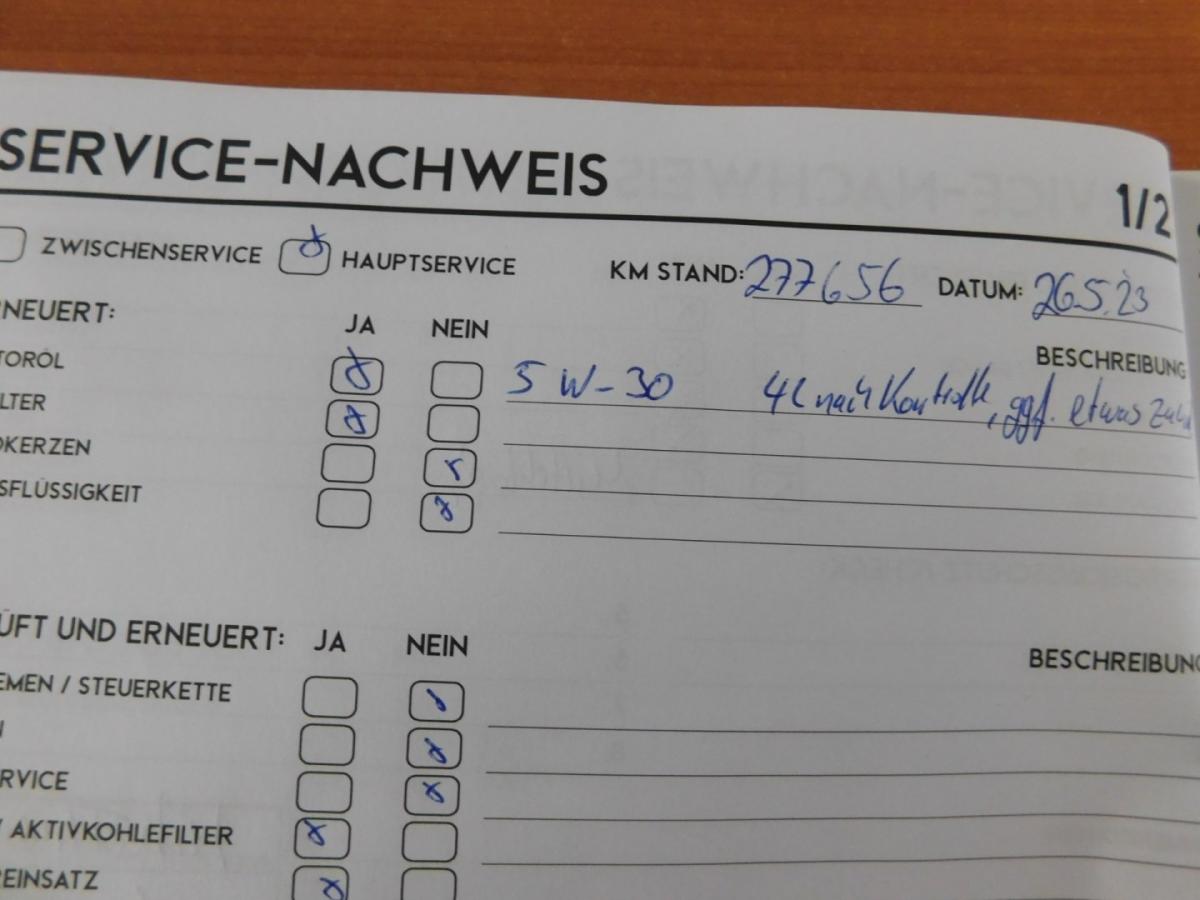 SERVICE-NACHWEIS 1/2
ZWISCHENSERVICE HAUPTSERVICE KM STAND: 277656 DATUM: 26.5.23
RNEUERT: JA NEIN BESCHREIBUNG
TORÖL 5 W-30 4L nach Kontrolle, ggf. etwas
LTER
KERZEN
SFLÜSSIGKEIT
ÜFT UND ERNEUERT: JA NEIN BESCHREIBUNG
EMEN / STEUERKETTE
RVICE
/ AKTIVKOHLEFILTER
REINSATZ